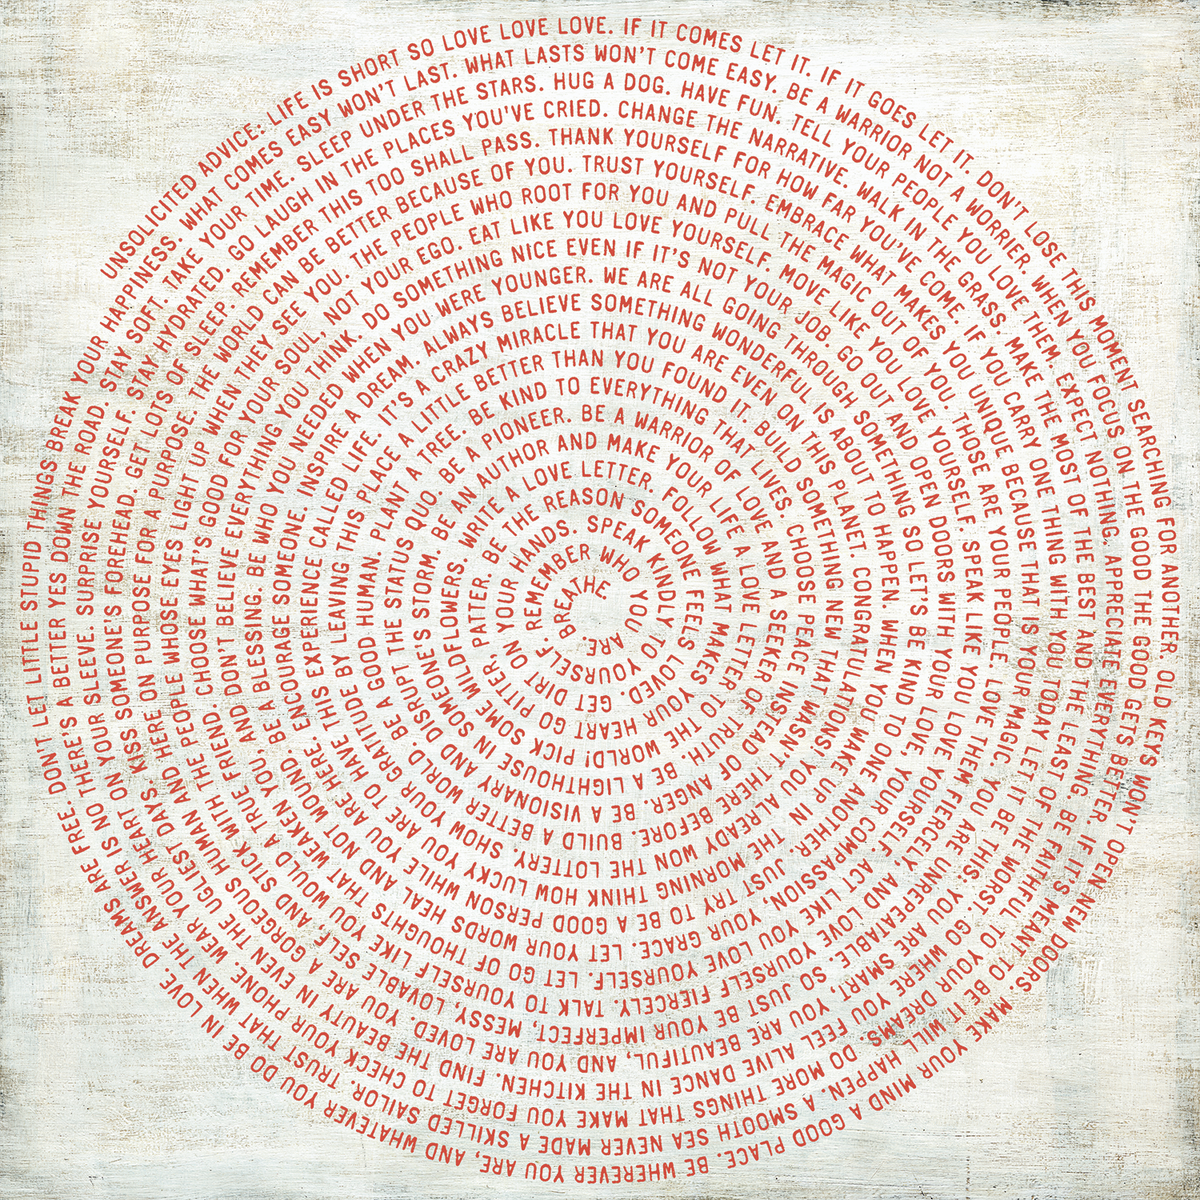 UNSOLICITED ADVICE: LIFE IS SHORT SO LOVE LOVE LOVE. IF IT COMES LET IT. IF IT GOES LET IT. DON'T LOSE THIS MOMENT SEARCHING FOR ANOTHER. OLD KEYS WON'T OPEN NEW DOORS. MAKE YOUR MIND A GOOD PLACE. BE WHEREVER YOU ARE, AND WHATEVER YOU DO BE IN LOVE. DREAMS ARE FREE. DON'T LET LITTLE STUPID THINGS BREAK YOUR HAPPINESS.
WHAT COMES EASY WON'T LAST. WHAT LASTS WON'T COME EASY. BE A WARRIOR NOT A WORRIER. WHEN YOU FOCUS ON THE GOOD THE GOOD GETS BETTER. IF IT'S MEANT TO BE IT WILL HAPPEN. A SMOOTH SEA NEVER MADE A SKILLED SAILOR. TRUST THAT WHEN THE ANSWER IS NO THERE'S A BETTER YES DOWN THE ROAD. STAY SOFT.
TAKE YOUR TIME. SLEEP UNDER THE STARS. HUG A DOG. HAVE FUN. TELL YOUR PEOPLE YOU LOVE THEM. EXPECT NOTHING, APPRECIATE EVERYTHING. BE FAITHFUL TO YOUR DREAMS. DO MORE THINGS THAT MAKE YOU FORGET TO CHECK YOUR PHONE. WEAR YOUR HEART ON YOUR SLEEVE. SURPRISE YOURSELF. STAY HYDRATED.
GO LAUGH IN THE PLACES YOU'VE CRIED. CHANGE THE NARRATIVE. WALK IN THE GRASS. MAKE THE MOST OF THE BEST AND THE LEAST OF THE WORST. GO WHERE YOU FEEL ALIVE DANCE IN THE KITCHEN. FIND THE BEAUTY IN EVEN THE UGLIEST DAYS. KISS SOMEONE'S FOREHEAD. GET LOTS OF SLEEP.
REMEMBER THIS TOO SHALL PASS. THANK YOURSELF FOR HOW FAR YOU'VE COME. IF YOU CARRY ONE THING WITH YOU TODAY LET IT BE THIS: YOU ARE SMART, YOU ARE BEAUTIFUL, AND YOU ARE LOVED. YOU ARE A GORGEOUS HUMAN AND HERE ON PURPOSE FOR A PURPOSE.
THE WORLD CAN BE BETTER BECAUSE OF YOU. TRUST YOURSELF. EMBRACE WHAT MAKES YOU UNIQUE BECAUSE THAT IS YOUR MAGIC. YOU ARE UNREPEATABLE. SO JUST BE YOUR IMPERFECT, MESSY, LOVABLE SELF. AND STICK WITH THE PEOPLE WHOSE EYES LIGHT UP WHEN THEY SEE YOU.
THE PEOPLE WHO ROOT FOR YOU AND PULL THE MAGIC OUT OF YOU. THOSE ARE YOUR PEOPLE. LOVE THEM FIERCELY, AND LOVE YOURSELF FIERCELY. TALK TO YOURSELF LIKE YOU WOULD A TRUE FRIEND. CHOOSE WHAT'S GOOD FOR YOUR SOUL, NOT YOUR EGO.
EAT LIKE YOU LOVE YOURSELF. MOVE LIKE YOU LOVE YOURSELF. SPEAK LIKE YOU LOVE YOURSELF. ACT LIKE YOU LOVE YOURSELF. LET GO OF THOUGHTS THAT WEAKEN YOU, AND DON'T BELIEVE EVERYTHING YOU THINK.
DO SOMETHING NICE EVEN IF IT'S NOT YOUR JOB. GO OUT AND OPEN DOORS WITH YOUR LOVE, YOUR COMPASSION, YOUR GRACE. LET YOUR WORDS HEAL AND NOT WOUND. BE A BLESSING. BE WHO YOU NEEDED WHEN YOU WERE YOUNGER.
WE ARE ALL GOING THROUGH SOMETHING SO LET'S BE KIND TO ONE ANOTHER. JUST TRY TO BE A GOOD PERSON WHILE YOU ARE HERE. ENCOURAGE SOMEONE. INSPIRE A DREAM.
ALWAYS BELIEVE SOMETHING WONDERFUL IS ABOUT TO HAPPEN. WHEN YOU WAKE UP IN THE MORNING THINK HOW LUCKY YOU ARE TO HAVE THIS EXPERIENCE CALLED LIFE.
IT'S A CRAZY MIRACLE THAT YOU ARE EVEN ON THIS PLANET. CONGRATULATIONS! YOU ALREADY WON THE LOTTERY. SHOW YOUR GRATITUDE BY LEAVING THIS PLACE
A LITTLE BETTER THAN YOU FOUND IT. BUILD SOMETHING NEW THAT WASN'T THERE BEFORE. BUILD A BETTER WORLD. BE A GOOD HUMAN. PLANT A TREE.
BE KIND TO EVERYTHING THAT LIVES. CHOOSE PEACE INSTEAD OF ANGER. BE A VISIONARY AND DISRUPT THE STATUS QUO.
BE A PIONEER. BE A WARRIOR OF LOVE AND A SEEKER OF TRUTH. BE A LIGHTHOUSE IN SOMEONE'S STORM.
BE AN AUTHOR AND MAKE YOUR LIFE A LOVE LETTER TO THE WORLD! PICK SOME WILDFLOWERS.
WRITE A LOVE LETTER. FOLLOW WHAT MAKES YOUR HEART GO PITTER, PATTER.
BE THE REASON SOMEONE FEELS LOVED. GET DIRT ON YOUR HANDS.
SPEAK KINDLY TO YOURSELF
REMEMBER WHO YOU ARE.
BREATHE